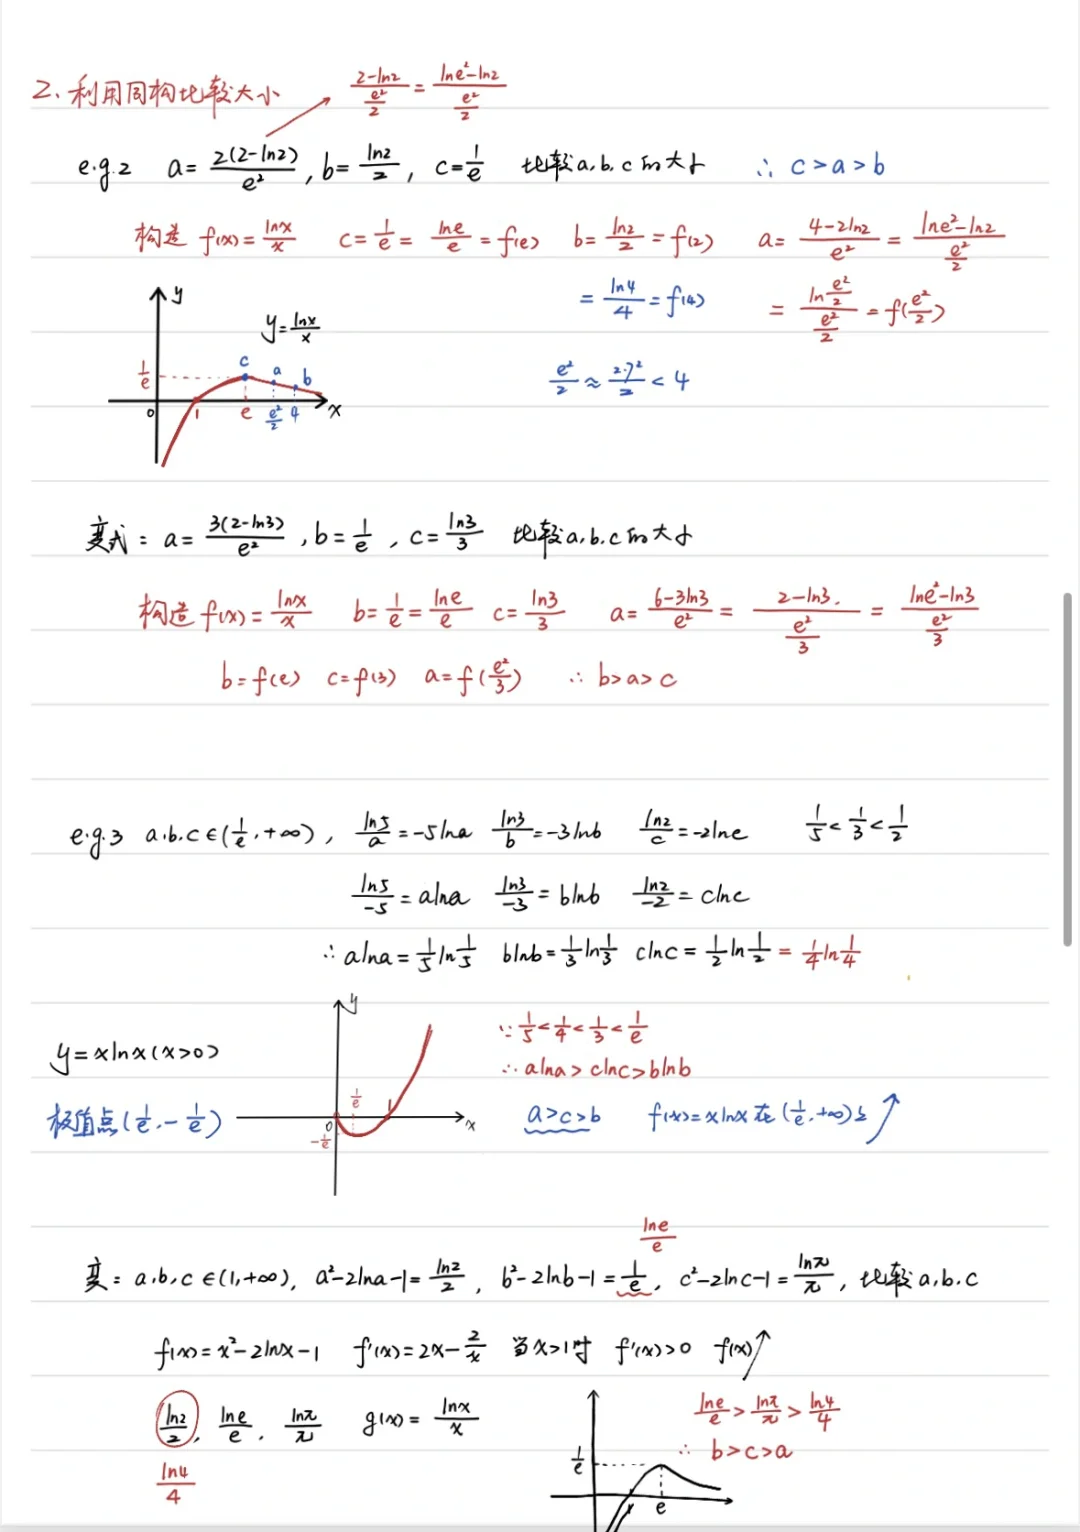 2. 利用同构比较大小 (2-ln2)/(e²/2) = (lne²-ln2)/(e²/2)
e.g.2 a = 2(2-ln2)/e², b = ln2/2, c = 1/e 比较a,b,c的大小 ∴ c > a > b
构造 f(x) = lnx/x c = 1/e = lne/e = f(e) b = ln2/2 = f(2) a = (4-2ln2)/e² = (lne²-ln2)/(e²/2)
= ln4/4 = f(4) = ln(e²/2)/(e²/2) = f(e²/2)
e²/2 ≈ 2.7²/2 < 4
y
y = lnx/x
1/e c a b
0 1 e e²/2 4 x
变式: a = 3(2-ln3)/e², b = 1/e, c = ln3/3 比较a,b,c的大小
构造 f(x) = lnx/x b = 1/e = lne/e c = ln3/3 a = (6-3ln3)/e² = (2-ln3)/(e²/3) = (lne²-ln3)/(e²/3)
b = f(e) c = f(3) a = f(e²/3) ∴ b > a > c
e.g.3 a,b,c ∈ (1/e, +∞), ln5/a = -5lna ln3/b = -3lnb ln2/c = -2lnc 1/5 < 1/3 < 1/2
ln5/-5 = alna ln3/-3 = blnb ln2/-2 = clnc
∴ alna = 1/5 ln 1/5 blnb = 1/3 ln 1/3 clnc = 1/2 ln 1/2 = 1/4 ln 1/4
y
y = xlnx (x>0) ∵ 1/5 < 1/4 < 1/3 < 1/e
∴ alna > clnc > blnb
极值点 (1/e, -1/e) a > c > b f(x) = xlnx 在 (1/e, +∞) 上 ↗
1/e 1
0 x
-1/e
lne/e
变: a,b,c ∈ (1,+∞), a²-2lna-1 = ln2/2, b²-2lnb-1 = 1/e, c²-2lnc-1 = lnπ/π, 比较a,b,c
f(x) = x²-2lnx-1 f'(x) = 2x - 2/x 当x>1时 f'(x)>0 f(x) ↗
ln2/2, lne/e, lnπ/π g(x) = lnx/x lne/e > lnπ/π > ln4/4
ln4/4 ∴ b > c > a
1/e
1 e